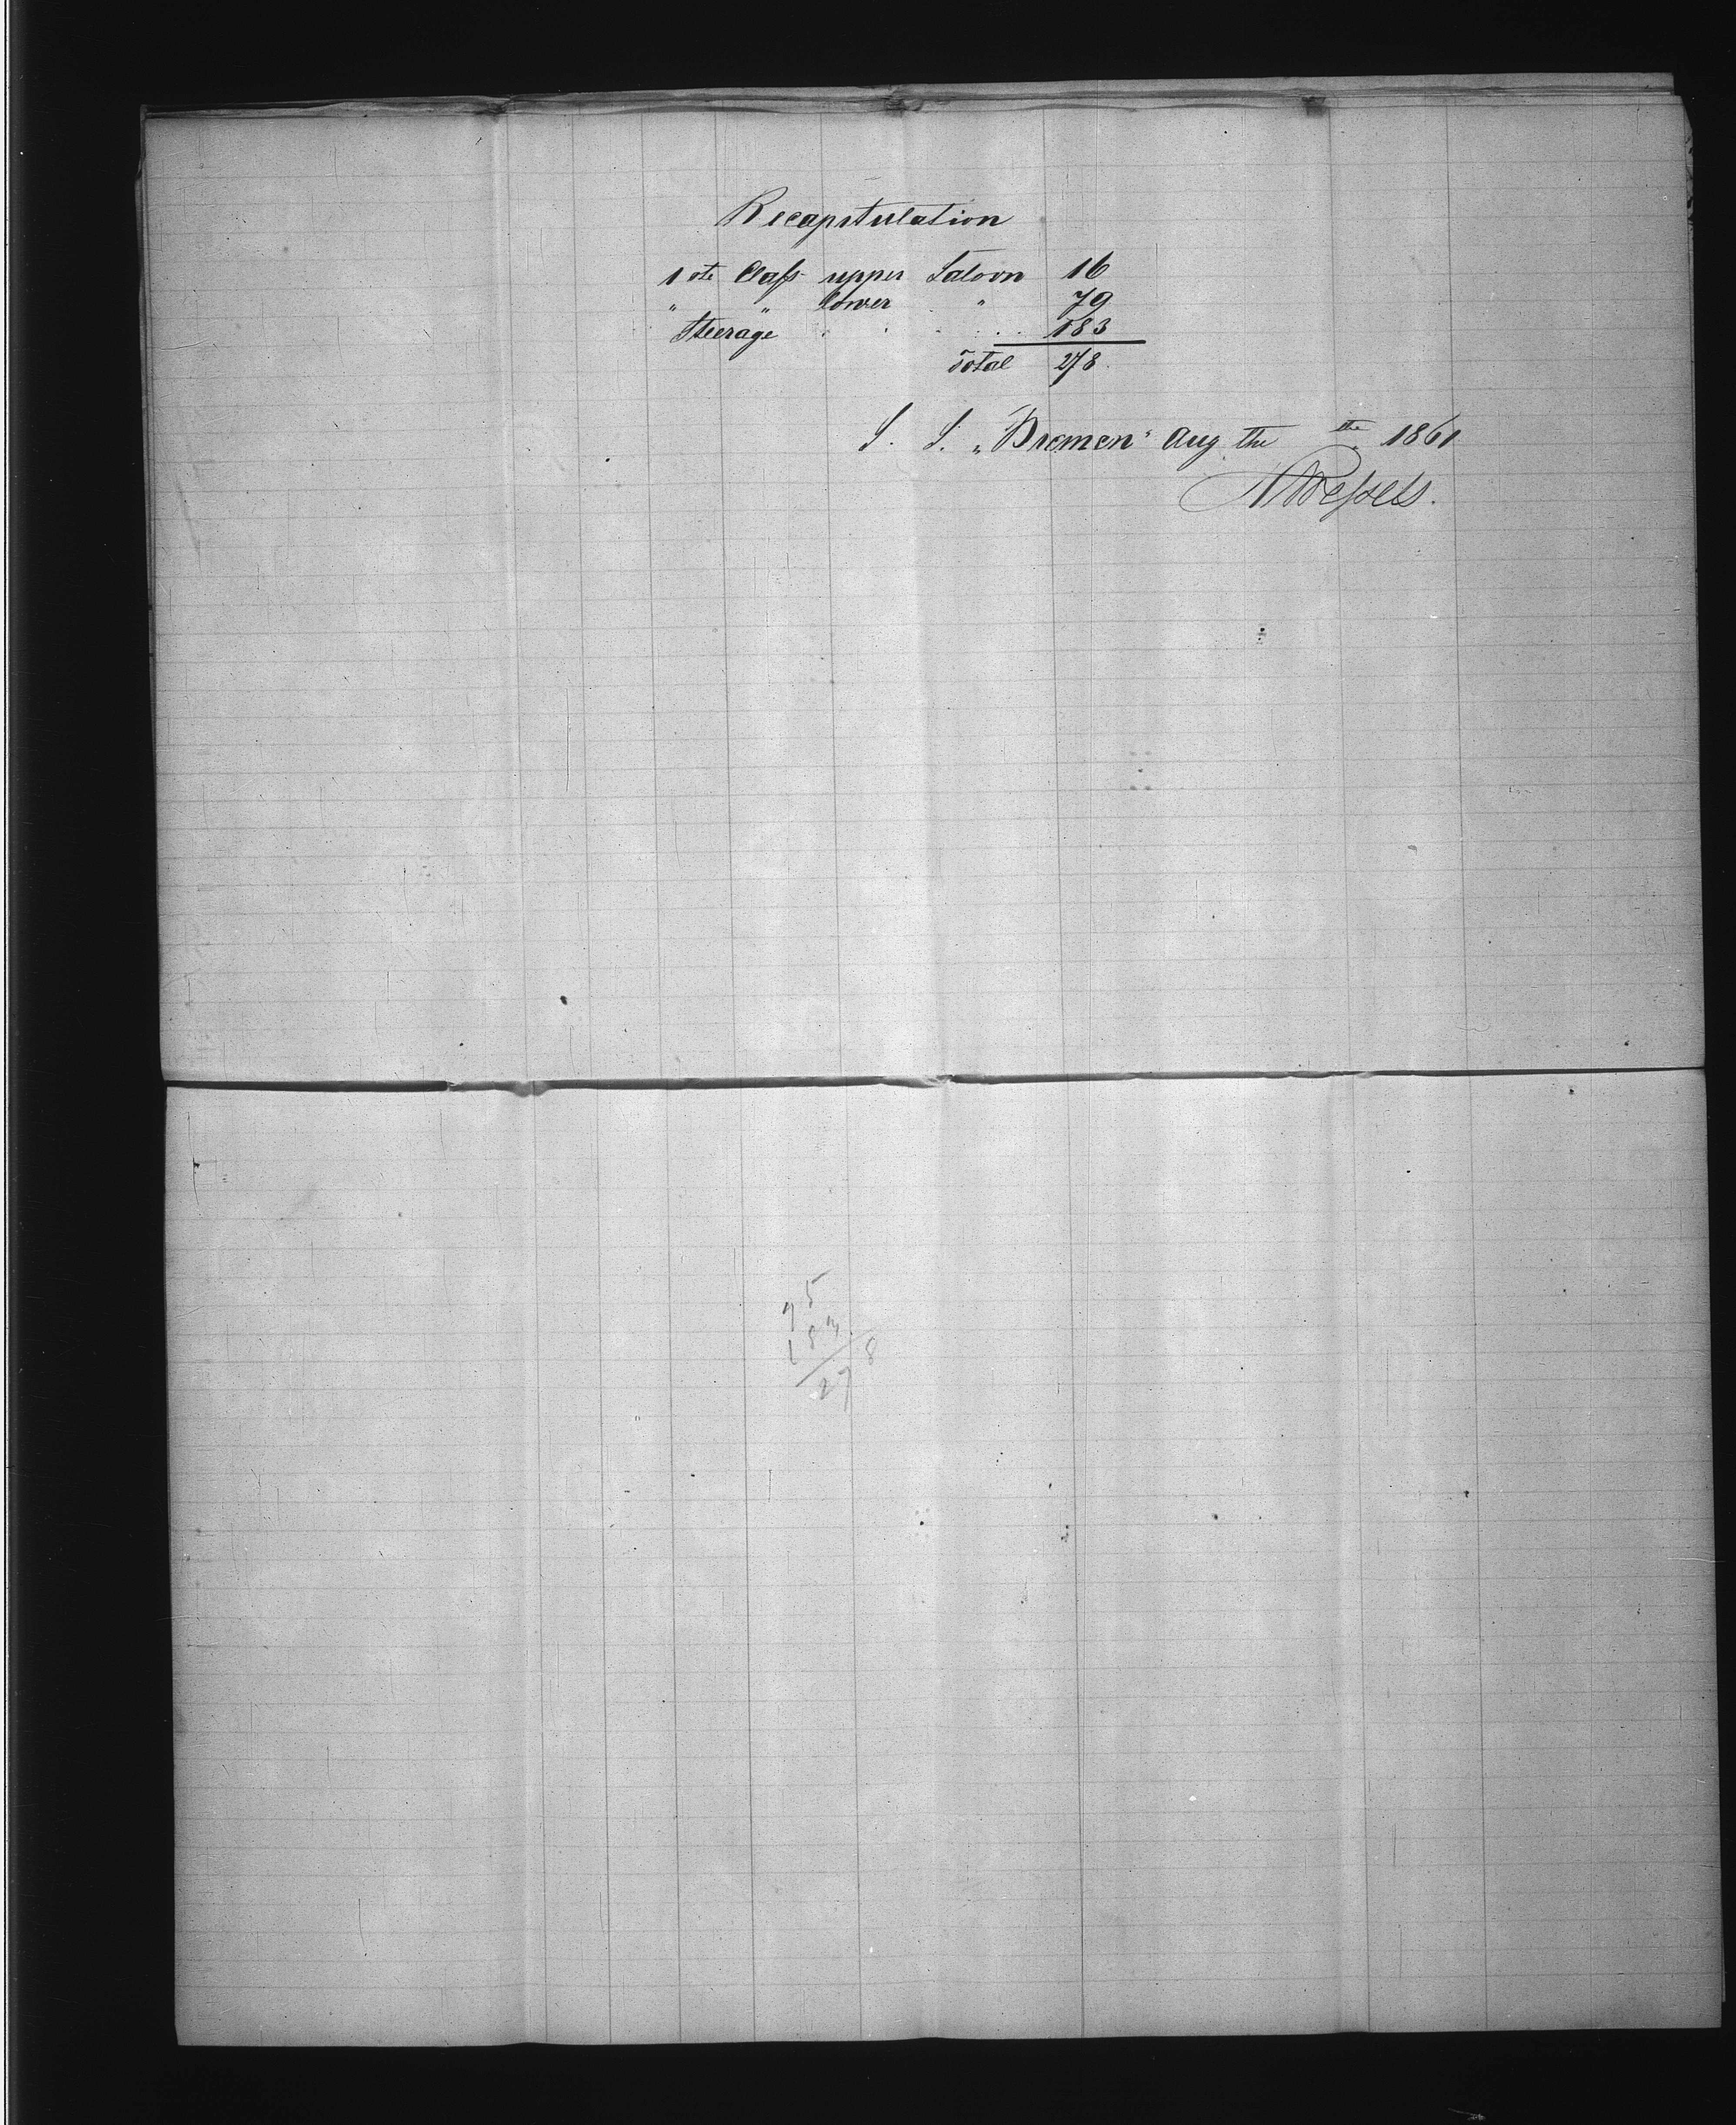 Recapitulation
1ste Class upper Saloon 16
" " lower " 79
Steerage . . . . . . 183
Total 278.
S. S. „Bremen" Aug. the the 1861
HWessels.
95
183
278